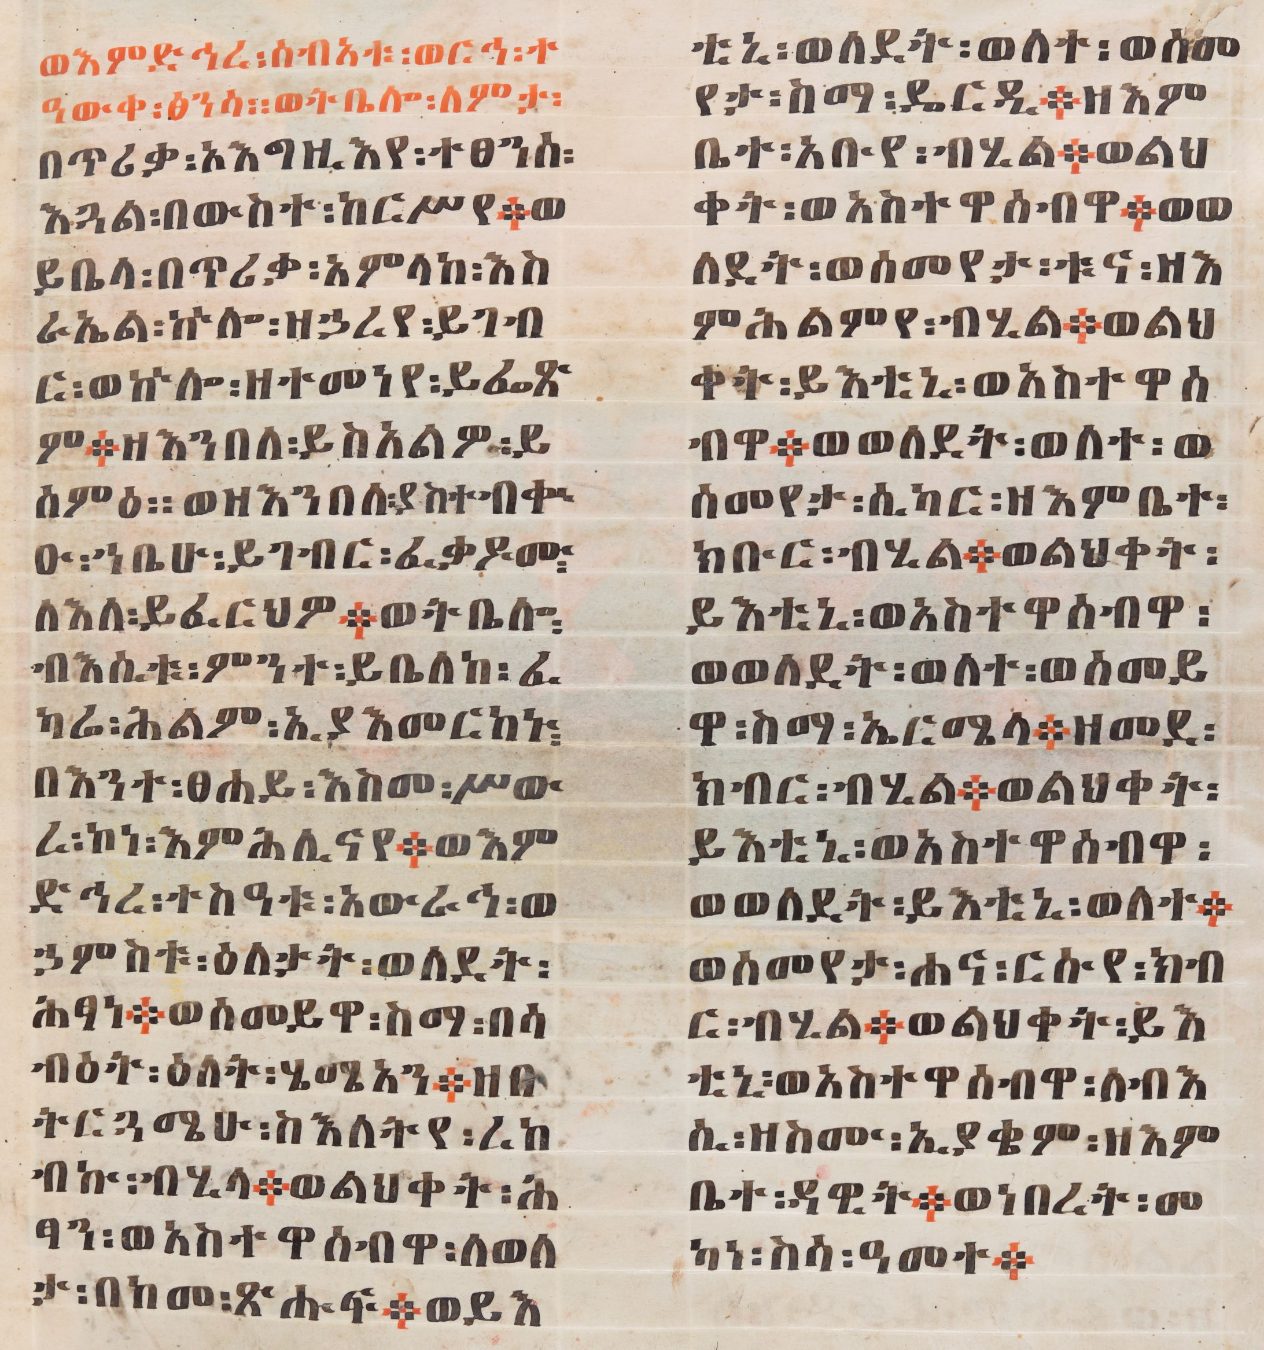 ወእምድኅረ፡ሰብአቱ፡ወርኅ፡ተ
ዓውቀ፡ፅንሳ፡፡ወትቤሎ፡ለምታ፡
በጥሪቃ፡አእግዚእየ፡ተፀንሰ፡
እጓል፡በውስተ፡ከርሥየ፨ወ
ይቤላ፡በጥሪቃ፡አምላከ፡እስ
ራኤል፡ኵሎ፡ዘኃረየ፡ይገብ
ር፡ወኵሎ፡ዘተመነየ፡ይፌጽ
ም፨ዘእንበለ፡ይስአልዎ፡ይ
ሰምዕ፡፡ወዘእንበለ፡ያስተብቀኍ
ዑ፡ኀቤሁ፡ይገብር፡ፈቃዶሙ፡
ለእለ፡ይፈርህዎ፨ወትቤሎ፡
ብእሲቱ፡ምንተ፡ይቤለከ፡ፈ
ካሬ፡ሕልም፡ኢያእመርከኑ፡
በእንተ፡ፀሐይ፡እስመ፡ሥው
ረ፡ኮነ፡እምሕሊናየ፨ወእም
ድኅረ፡ተስዓቱ፡አውራኅ፡ወ
ኃምስቱ፡ዕለታት፡ወለደት፡
ሕፃነ፨ወሰመይዋ፡ስማ፡በሳ
ብዕት፡ዕለት፡ሄሜአን፨ዘቡ
ትርጓሜሁ፡ስእለትየ፡ረከ
ብኩ፡ብሂላ፨ወልህቀት፡ሕ
ፃን፡ወአስተዋሰብዋ፡ለወለ
ታ፡በከመ፡ጽሑፍ፨ወይእ
ቲኒ፡ወለደት፡ወለተ፡ወሰመ
የታ፡ስማ፡ዴርዲ፨ዘእም
ቤተ፡አቡየ፡ብሂል፨ወልህ
ቀት፡ወአስተዋሰብዋ፨ወወ
ለደት፡ወሰመየታ፡ቱና፡ዘእ
ምሕልምየ፡ብሂል፨ወልህ
ቀት፡ይእቲኒ፡ወአስተዋሰ
ብዋ፨ወወለደት፡ወለተ፡ወ
ሰመየታ፡ሲካር፡ዘእምቤተ፡
ክቡር፡ብሂል፨ወልህቀት፡
ይእቲኒ፡ወአስተዋሰብዋ፡
ወወለደት፡ወለተ፡ወሰመይ
ዋ፡ስማ፡ኤርሜላ፨ዘመደ፡
ክብር፡ብሂል፨ወልህቀት፡
ይእቲኒ፡ወአስተዋሰብዋ፡
ወወለደት፡ይእቲኒ፡ወለተ፨
ወሰመየታ፡ሐና፡ርስየ፡ክብ
ር፡ብሂል፨ወልህቀት፡ይእ
ቲኒ፡ወአስተዋሰብዋ፡ለብእ
ሲ፡ዘስሙ፡ኢያቄም፡ዘእም
ቤተ፡ዳዊት፨ወነበረት፡መ
ካነ፡ስሳ፡ዓመተ፨